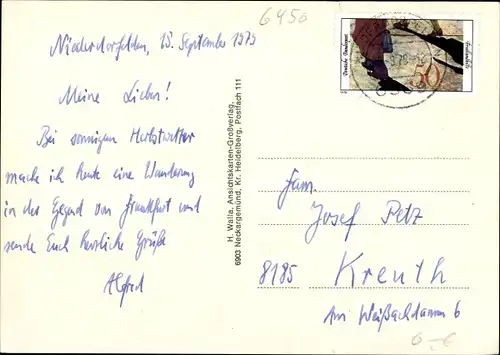 6450
Niederdorfelden, 15. September 1979
Meine Lieben!
Bei sonnigem Herbstwetter
mache ich heute eine Wanderung
in der Gegend von Frankfurt und
sende Euch herzliche Grüße
Alfred
H. Walla, Ansichtskarten-Großverlag,
6903 Neckargemünd, Kr. Heidelberg, Postfach 111
Deutsche Bundespost
50
Fam.
Josef Petz
8185 Kreuth
Am Weißachdamm 6
6,-€